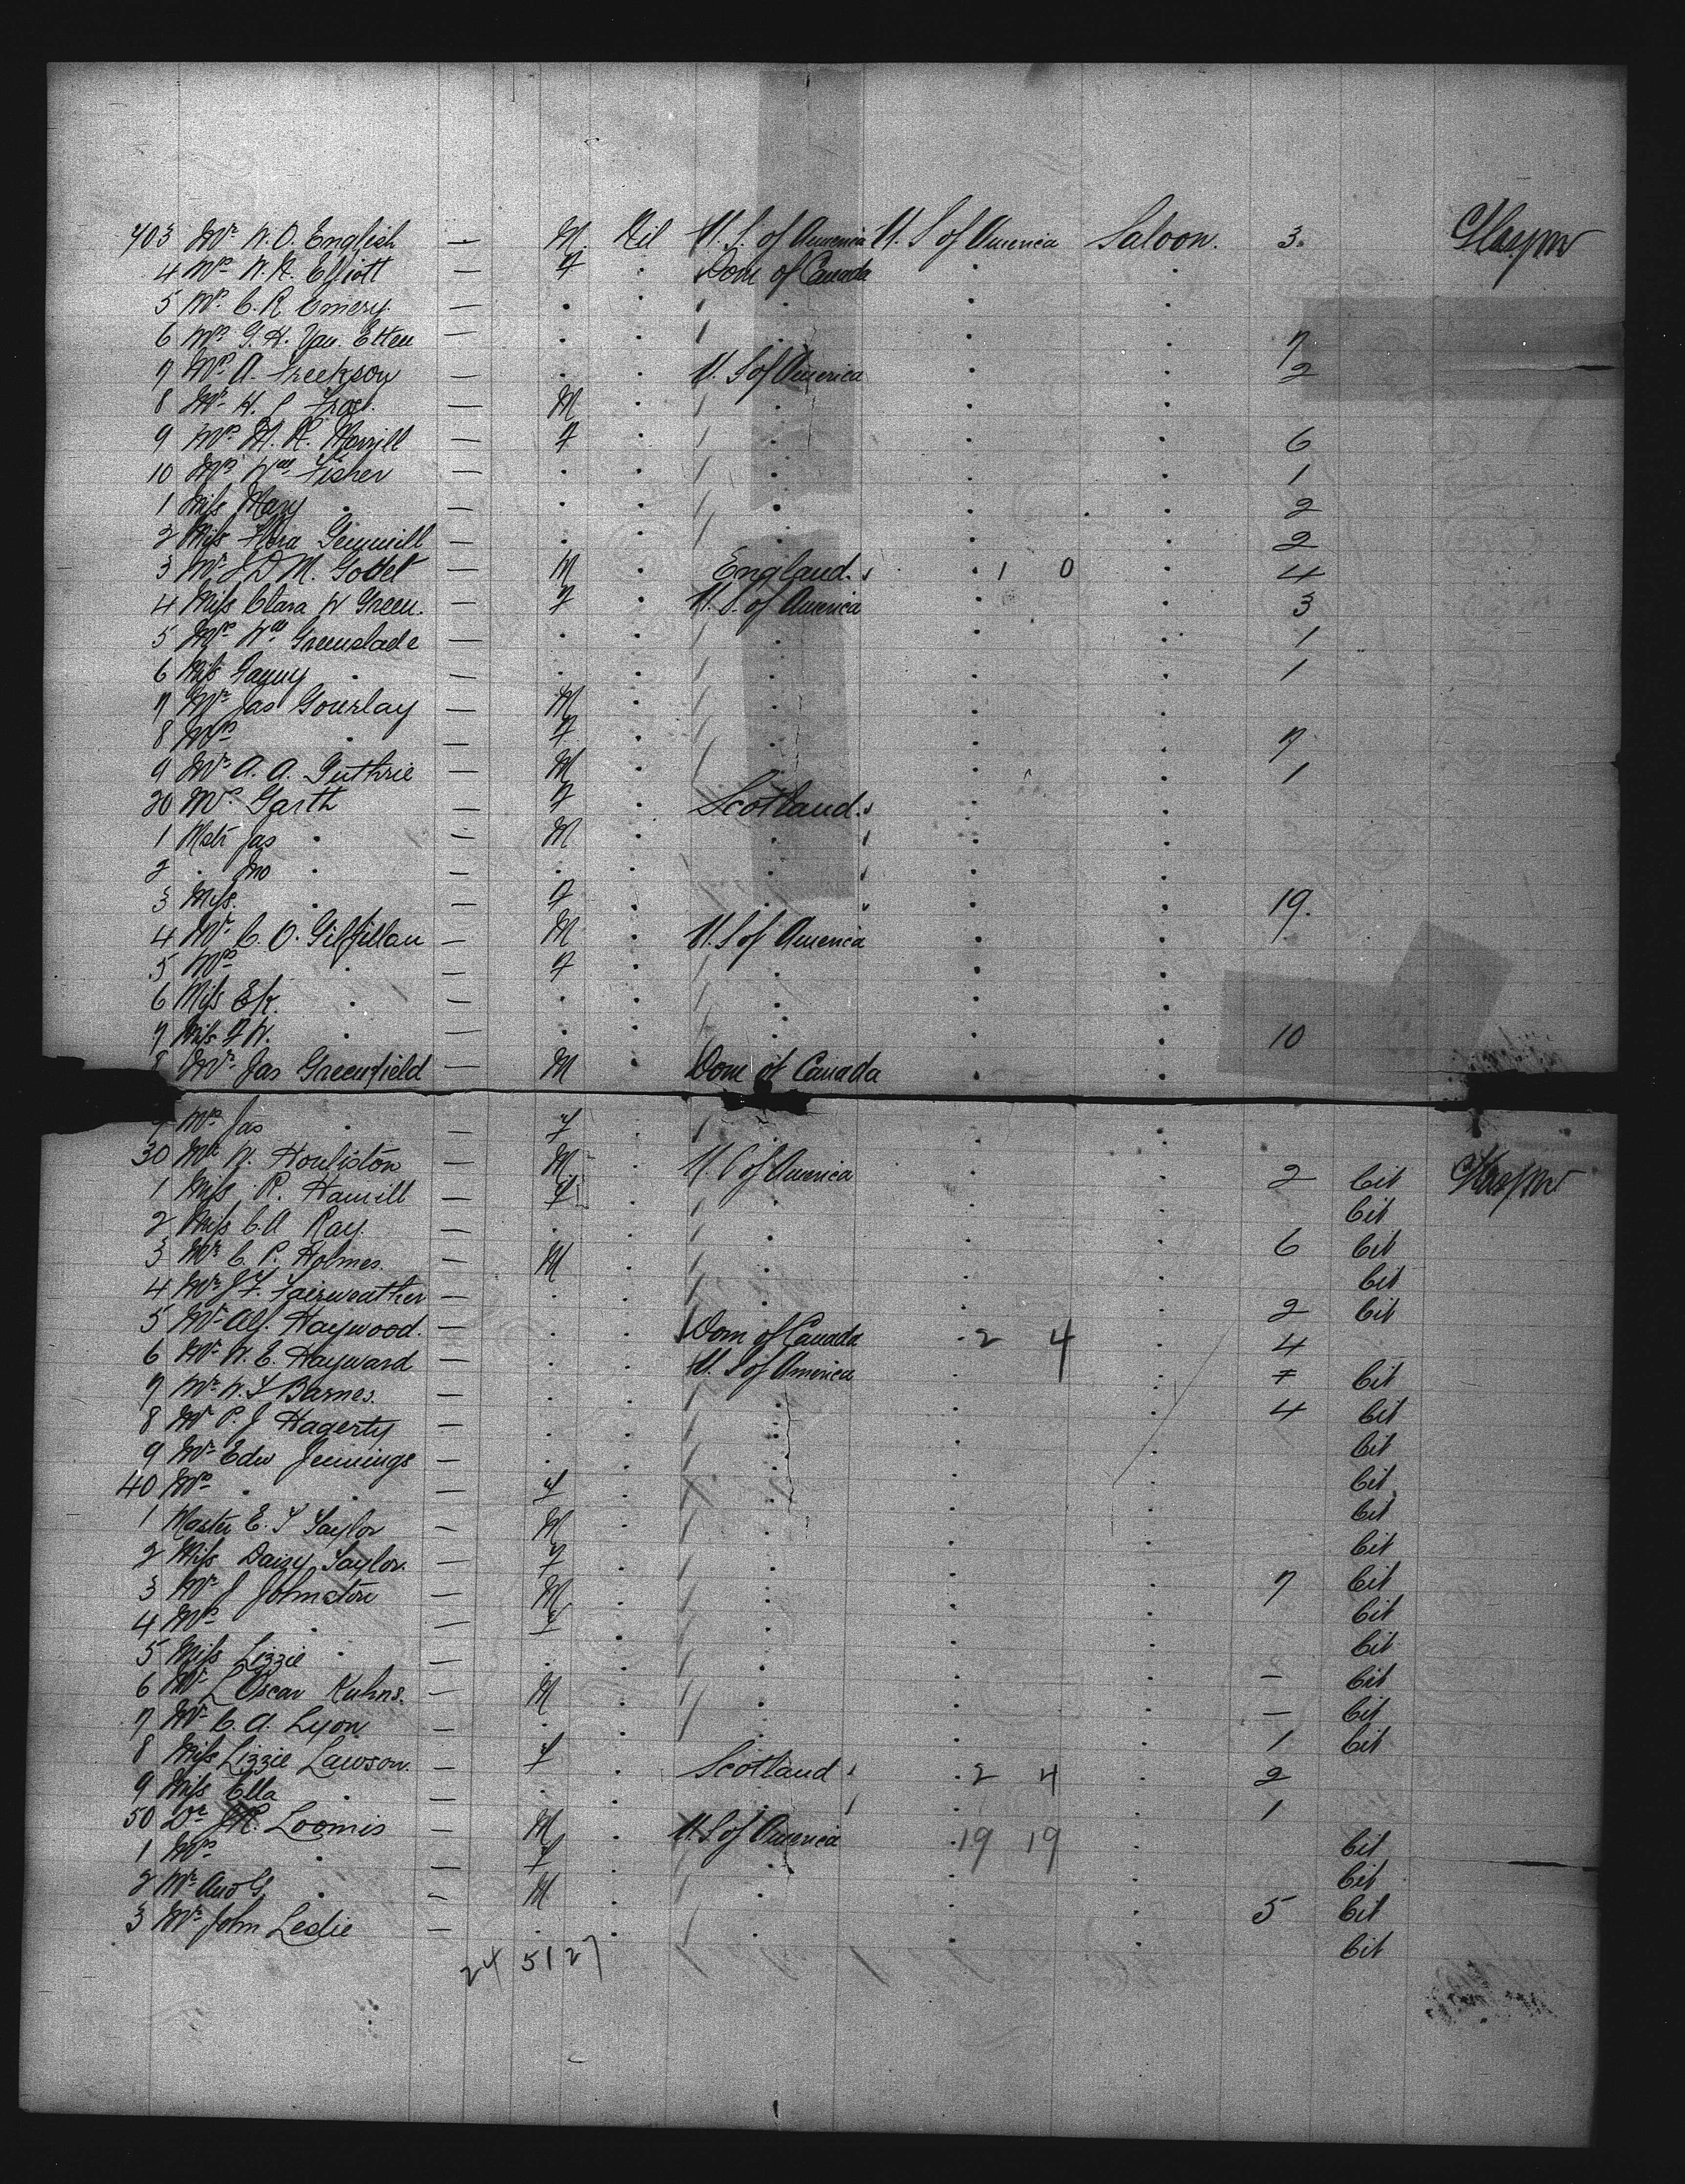 403 Mr W. O. English — M. Nil U. S. of America U. S of America Saloon. 3. Glasgow
4 Mrs W. H. Elliott — F . Dom of Canada . .
5 Mrs C. R. Emery. — . . / . . .
6 Mrs G. H. Van Etten — . . / . . . 7
7 Mrs A. — . . U. S of America . . 2
8 Mr H. — M . / . . .
9 Mrs H. R. Merrill — F . / . . . 6
10 Mrs Wm Fisher — . . / . . . 1
1 Miss Mary . — . . / . . . 2
2 Miss Flora Gemmill — . . / . . . 2
3 Mr J D M. — M . England. . 1 0 . 4
4 Miss Clara W Green. — F . U. S. of America . . 3
5 Mrs Wm Greenslade — . . / . . . 1
6 Miss Fanny . — . . / . . . 1
7 Mr Jas Gourlay — M . / . . .
8 Mrs . — F . / . . . 7
9 Mr A. A. Guthrie — M . / . . . 1
20 Mrs Garth — F . Scotland. . .
1 Mstr Jas . — M . . . .
2 . Jno . — . . . . .
3 Miss . — F . . . . 19.
4 Mr C. O. Gilfillan — M . U. S of America . .
5 Mrs . — F . / . . .
6 Miss E K. . — . . / . . .
7 Miss F W. . — . . / . . . 10
8 Mr Jas Greenfield — M . Dom of Canada . .
9 Mrs Jas . — F . / . . .
30 Mr W. Houliston — M . U. S of America . . 2 Cit Glasgow
1 Miss R. Hamill — F . / . . . Cit
2 Miss C. A Ray. — . . / . . . 6 Cit
3 Mr C. P. Holmes. — M . / . . . Cit
4 Mr J F. Fairweather — . . / . . . 2 Cit
5 Mr Alf. Haywood. — . . Dom of Canada . 2 4 . 4
6 Mr W. E. Hayward — . . U. S of America . . Cit
7 Mr W. S Barnes. — . . / . . . 4 Cit
8 Mr P. J Hagerty — . . / . . . Cit
9 Mr Edw Jennings — . . / . . . Cit
40 Mrs . . — F . / . . . Cit
1 Master E. T Taylor — M . / . . . Cit
2 Miss Daisy Taylor. — F . / . . . 7 Cit
3 Mr J Johnston — M . / . . . Cit
4 Mrs . — F . / . . . Cit
5 Miss Lizzie . — . . / . . . — Cit
6 Mr L Oscar Kuhns. — M . / . . . — Cit
7 Mr C. A. Lyon — . . / . . . 1 Cit
8 Miss Lizzie Lawson. — F . Scotland . 2 4 . 2
9 Miss Ella . — . . . . . 1
50 Dr J R. Loomis — M . U. S of America . 19 19 Cit
1 Mrs . — F . / . . . Cit
2 Mr And G. . — M . / . . . 5 Cit
3 Mr John Leslie — . . / . . . Cit
24 51 27